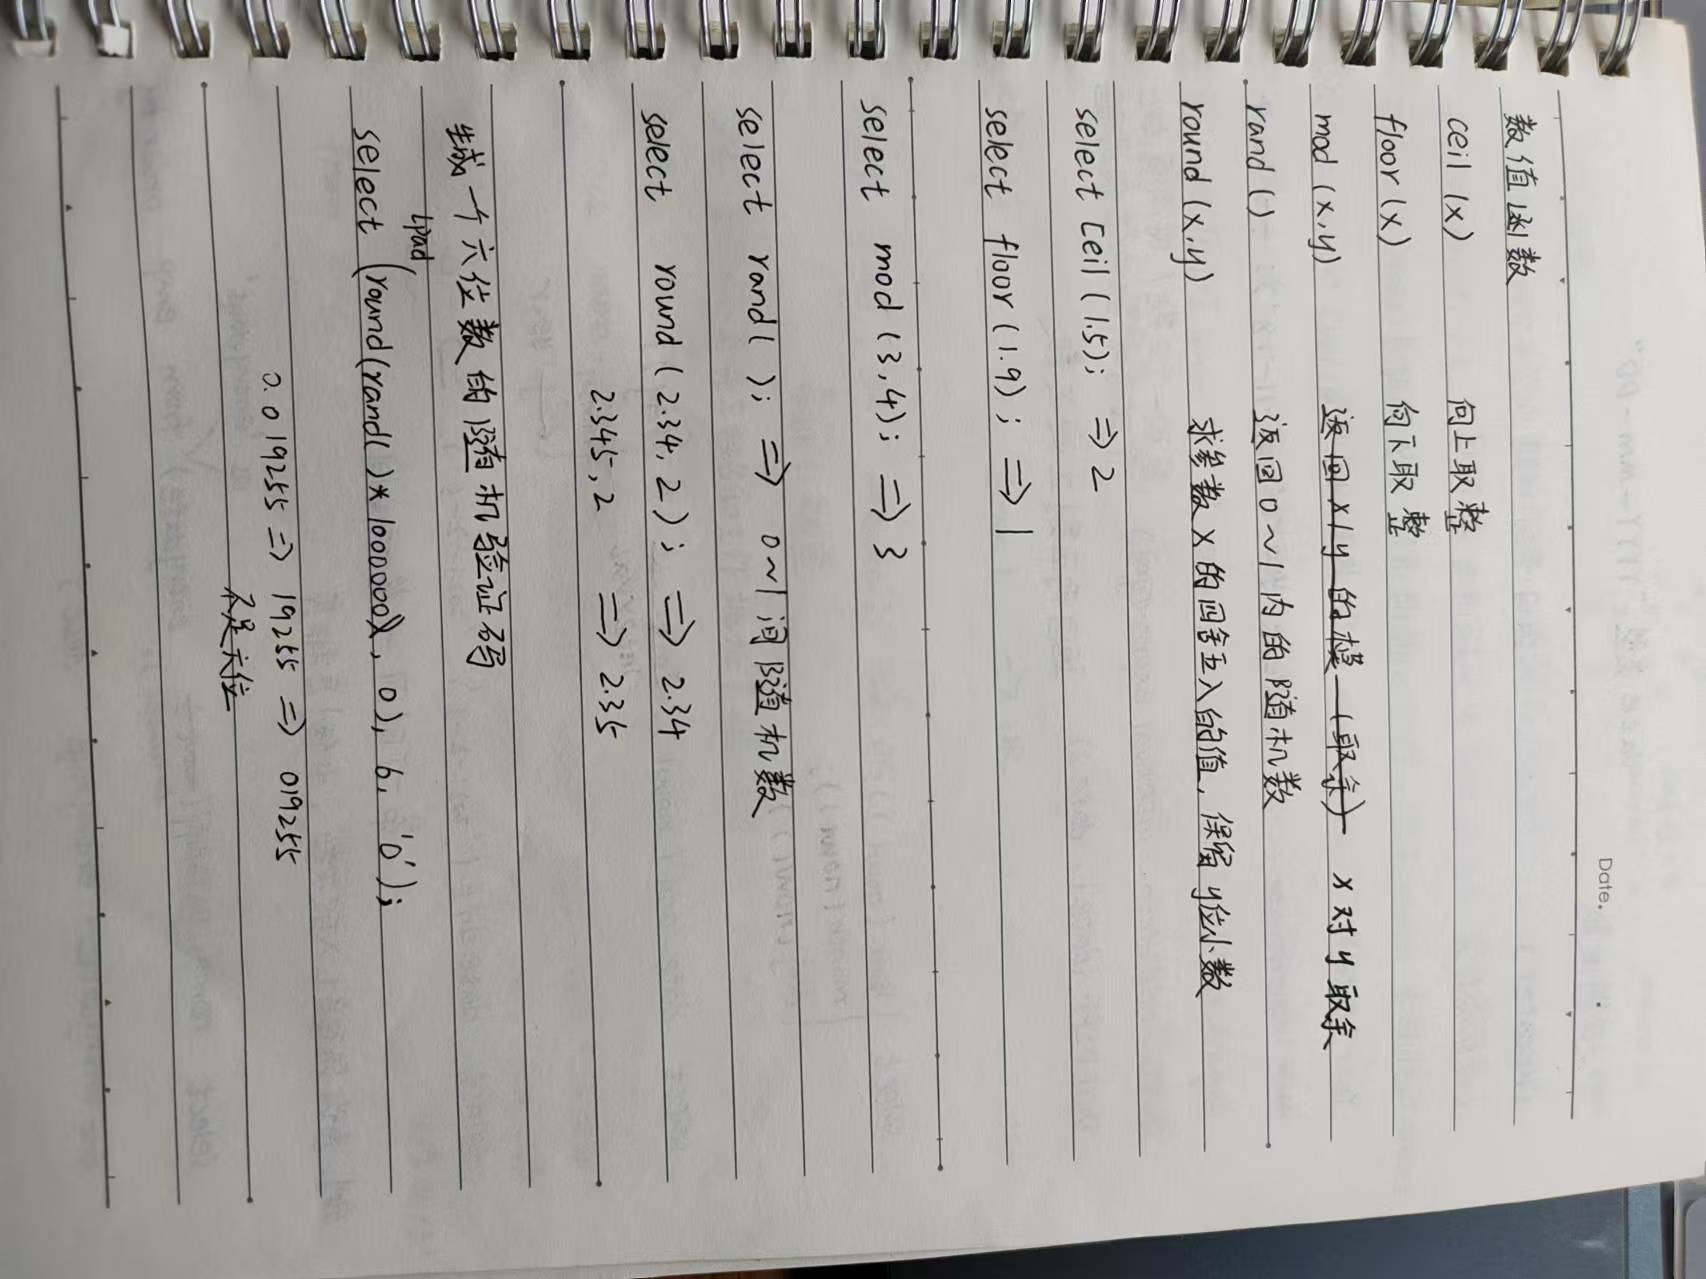 Date.
数值函数
ceil (x) 向上取整
floor (x) 向下取整
mod (x,y) 返回 x/y 的模 (取余) x 对 y 取余
rand () 返回 0~1 内的随机数
round (x,y) 求参数 x 的四舍五入的值, 保留 y位小数
select ceil (1.5); ⇒ 2
select floor (1.9); ⇒ 1
select mod (3,4); ⇒ 3
select rand( ); ⇒ 0~1 间随机数
select round (2.34, 2); ⇒ 2.34
2.345, 2 ⇒ 2.35
生成一个六位数的随机验证码
lpad
select (round(rand( )* 1000000), 0), 6, '0');
0.019255 ⇒ 19255 ⇒ 019255
不足六位